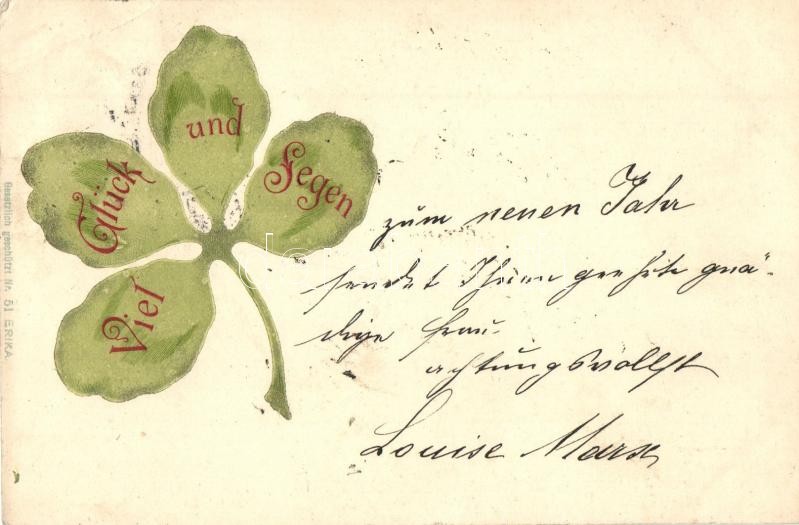 Viel
Glück
und
Segen
zum neuen Jahr
sendet Ihnen geehrte gnä-
dige Frau.
achtungsvollst
Louise Marx
Gesetzlich geschützt Nr. 51 ERIKA.